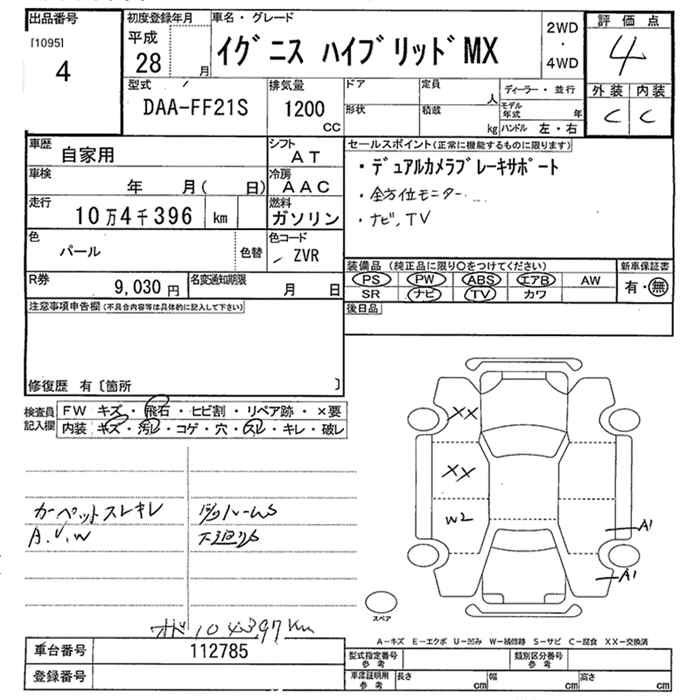 出品番号
[1095]
4
初度登録年月
平成
28 月
車名・グレード
イグニス ハイブリッド MX
2WD
・
4WD
評価点
4
外装 内装
C C
型式
DAA-FF21S
排気量
1200
CC
ドア
定員
人
形状
積載
kg
ディーラー・並行
モデル年式 年
ハンドル 左・右
車歴
自家用
シフト
AT
車検
年 月( 日)
冷房
AAC
走行
10万4千396 km
燃料
ガソリン
色
パール
色替
色コード
ZVR
R券
9,030 円
名変通知期限
月 日
セールスポイント(正常に機能するものに限ります)
・デュアルカメラブレーキサポート
・全方位モニター
・ナビ, TV
装備品 (純正品に限り○をつけてください)
PS PW ABS エアB AW
SR ナビ TV カワ
新車保証書
有・無
後日品
注意事項申告欄(不具合内容等は具体的に記入して下さい)
修復歴 有〔箇所 〕
検査員記入欄
FW キズ・飛石・ヒビ割・リペア跡・×要
内装 キズ・汚レ・コゲ・穴・スレ・キレ・破レ
カーペットスレキレ
A.U.W
下廻りS
XX
XX
W2
A1
A1
スペア
104397km
A-キズ E-エクボ U-凹み W-補修跡 S-サビ C-腐食 XX-交換済
車台番号
112785
登録番号
型式指定番号
参考
類別区分番号
参考
車庫証明用
参考
長さ cm
幅 cm
高さ cm